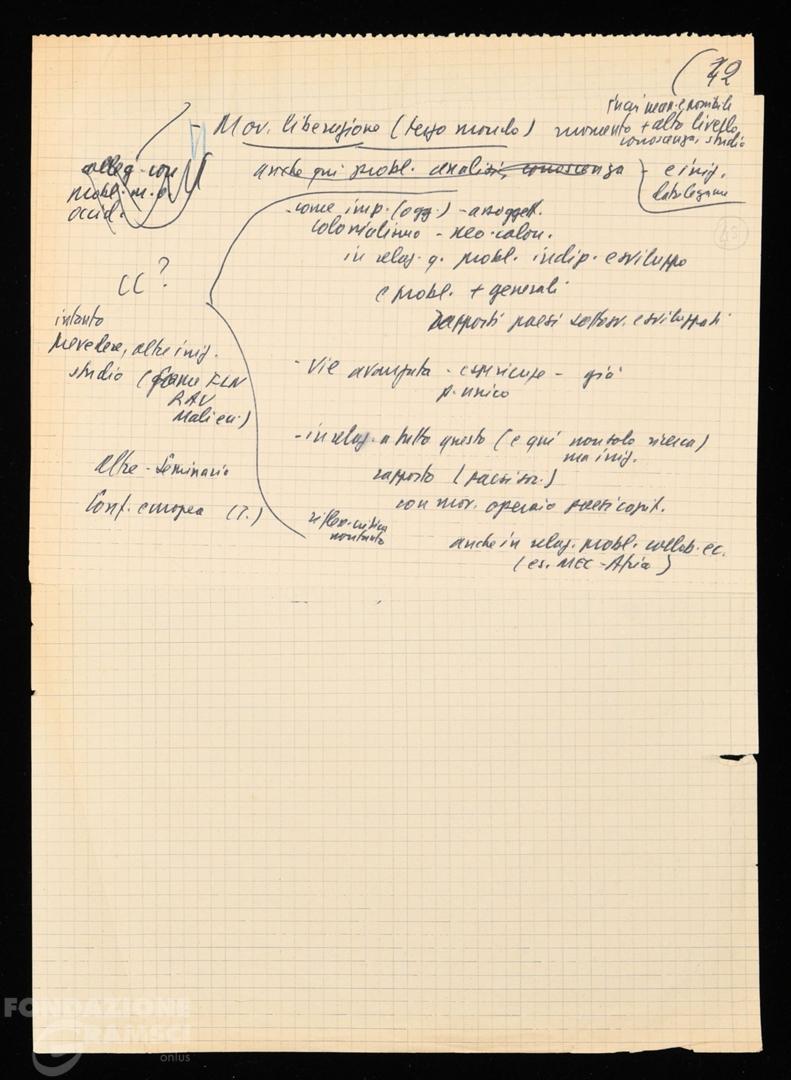 42
- Mov. liberazione (terzo mondo)
momento + alto livello
conoscenza, studio
anche qui probl. analisi, conoscenza - e iniz.
da collegare
colleg. con
probl. m. o.
occid.
- come imp. (ogg.) - assoggett.
colonialismo - neo-colon.
in relaz. a probl. indip. e sviluppo
e probl. + generali
rapporti paesi sottosv. e sviluppati
CC?
intanto
prevedere, altre iniz.
studio (FLN
RAU
Mali ecc.)
- vie avanzata - esperienze - già
p. unico
- in relaz. a tutto questo (e qui non solo ricerca)
ma iniz.
rapporto (paesi sv.)
con mov. operaio paesi capit.
altre - Seminario
Conf. europea (?)
rifless. critica
anche in relaz. probl. collab. ec.
(es. MEC - Africa)
FONDAZIONE
GRAMSCI
onlus